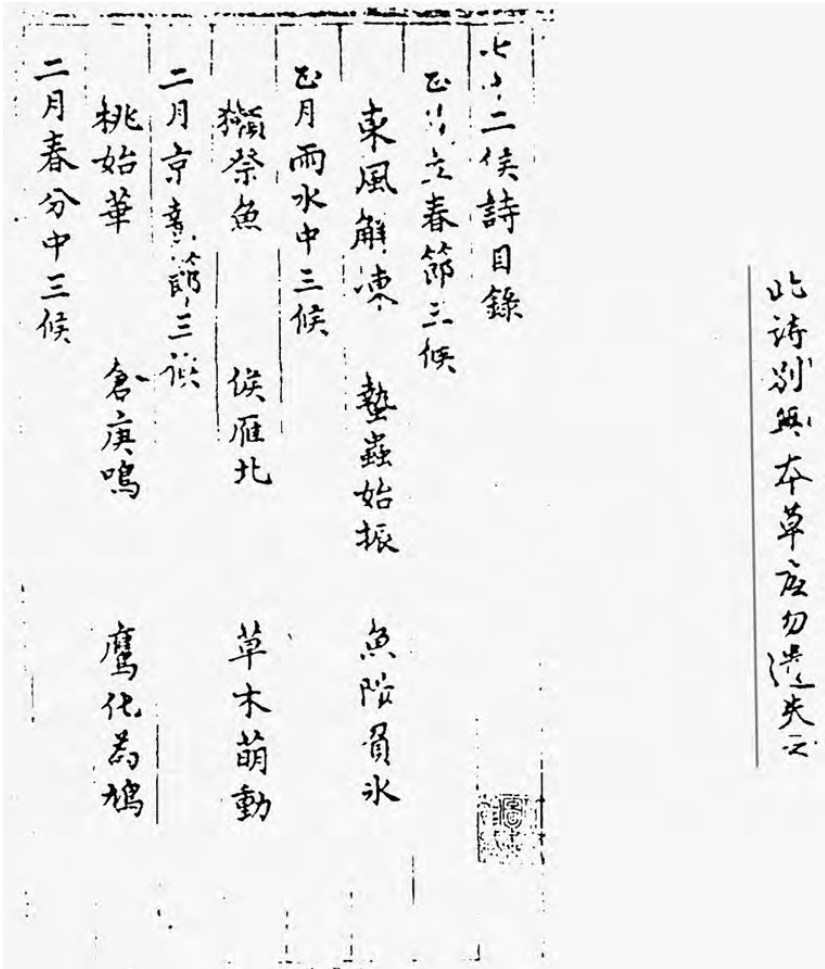 此詩別無本草底勿遺失
七十二候詩目錄
正月立春節三候
東風解凍 蟄蟲始振 魚陟負氷
正月雨水中三候
獺祭魚 候雁北 草木萌動
二月京蟄節三候
桃始華 倉庚鳴 鷹化為鳩
二月春分中三候